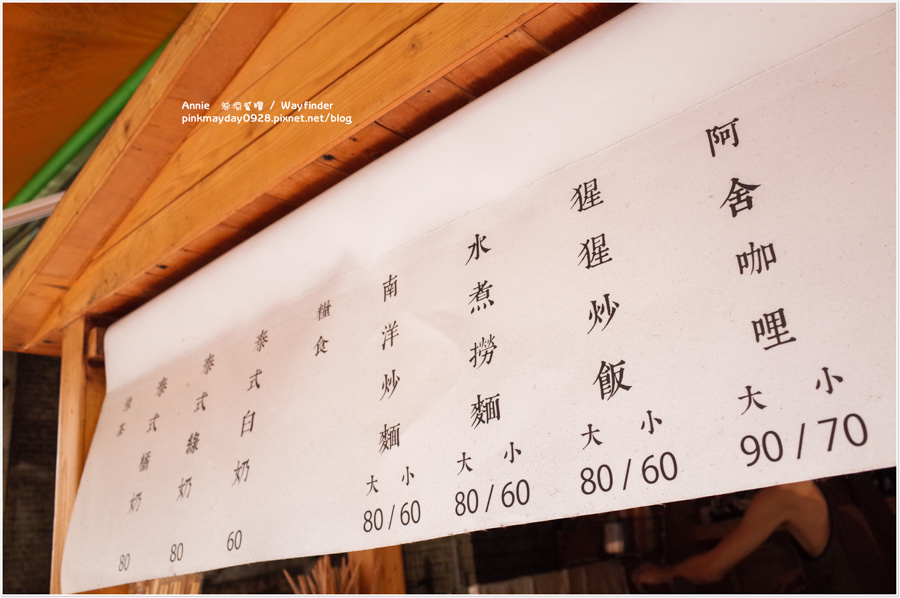 Annie / Wayfinder
pinkmayday0928.pixnet.net/blog
阿舍咖哩
大 小
90 / 70
猩猩炒飯
大 小
80 / 60
水煮撈麵
大 小
80 / 60
南洋炒麵
大 小
80 / 60
食
泰式白奶
60
泰式綠奶
80
泰式橘奶
80